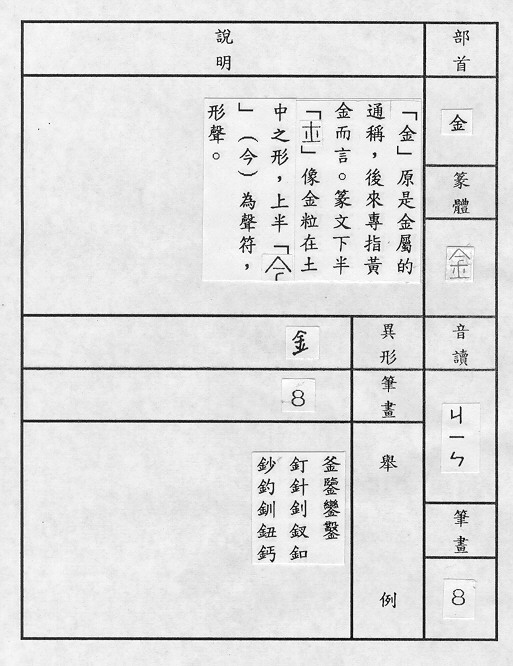 部首
金
篆體
音讀
ㄐㄧㄣ
筆畫
8
說明
「金」原是金屬的
通稱,後來專指黃
金而言。篆文下半
「」像金粒在土
中之形,上半「
」(今)為聲符,
形聲。
異形
金
筆畫
8
舉例
釜鑒鑾鑿
釘針釗釵釦
鈔釣釧鈕鈣